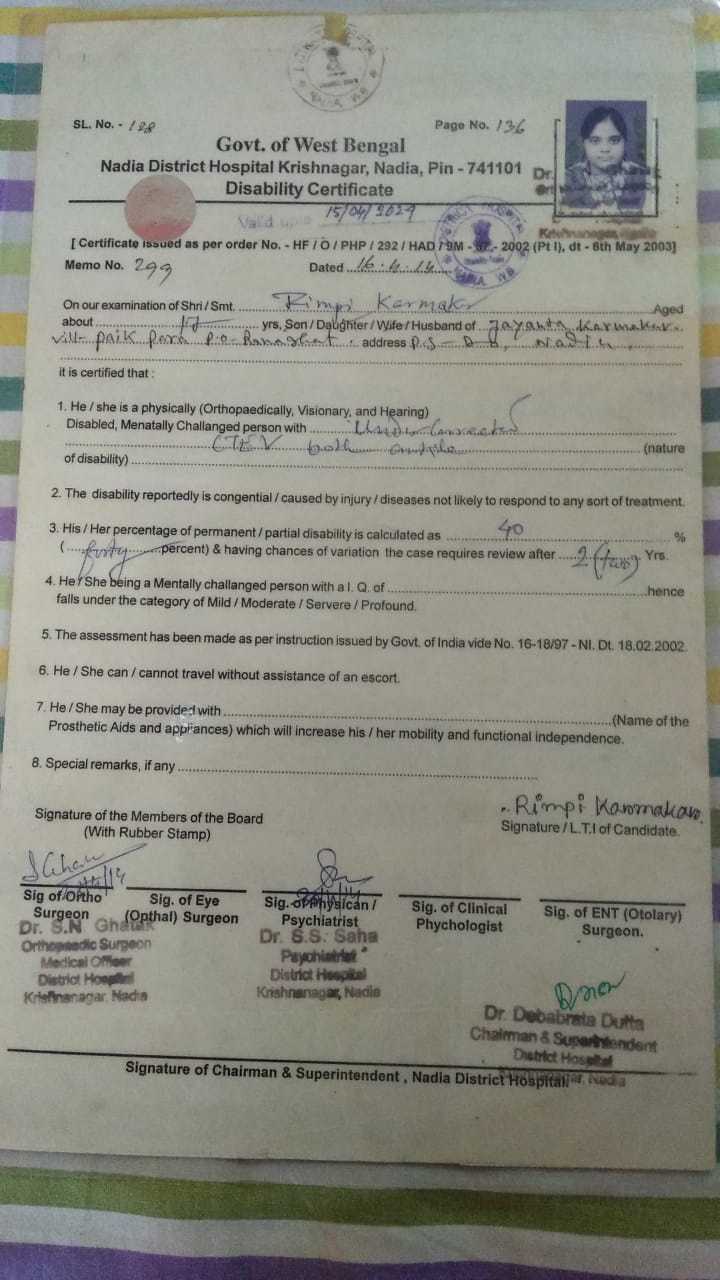 SL. No. - 128
Page No. 136
Govt. of West Bengal
Nadia District Hospital Krishnagar, Nadia, Pin - 741101
Dr.
Disability Certificate
Valid upto 15/04/2029
Krishnanagar, Nadia
[ Certificate issued as per order No. - HF / O / PHP / 292 / HAD / 9M - 57 - 2002 (Pt I), dt - 8th May 2003]
Memo No. 299
Dated 16.4.14
On our examination of Shri / Smt. Rimpi Karmakr Aged
about 17 yrs, Son / Daughter / Wife / Husband of Jayanta Karmakar
vill- Paik Para P.O- Ranaghat address P.S- Do, Nadia
it is certified that :
1. He / she is a physically (Orthopaedically, Visionary, and Hearing)
Disabled, Menatally Challanged person with Under Corrected
CTEV both (nature
of disability)
2. The disability reportedly is congential / caused by injury / diseases not likely to respond to any sort of treatment.
3. His / Her percentage of permanent / partial disability is calculated as 40 %
(forty percent) & having chances of variation the case requires review after 2 (two) Yrs.
4. He / She being a Mentally challanged person with a I. Q. of hence
falls under the category of Mild / Moderate / Servere / Profound.
5. The assessment has been made as per instruction issued by Govt. of India vide No. 16-18/97 - NI. Dt. 18.02.2002.
6. He / She can / cannot travel without assistance of an escort.
7. He / She may be provided with (Name of the
Prosthetic Aids and appliances) which will increase his / her mobility and functional independence.
8. Special remarks, if any
Rimpi Karmakar.
Signature / L.T.I of Candidate.
Signature of the Members of the Board
(With Rubber Stamp)
Sig of Ortho
Surgeon
Sig. of Eye
(Opthal) Surgeon
Sig. of Physican /
Psychiatrist
Sig. of Clinical
Phychologist
Sig. of ENT (Otolary)
Surgeon.
Dr. S.N. Ghatak
Orthopaedic Surgeon
Medical Officer
District Hospital
Krishnanagar, Nadia
Dr. S.S. Saha
Psychiatrist
District Hospital
Krishnanagar, Nadia
Dr. Debabrata Dutta
Chairman & Superintendent
District Hospital
Krishnanagar, Nadia
Signature of Chairman & Superintendent , Nadia District Hospital.